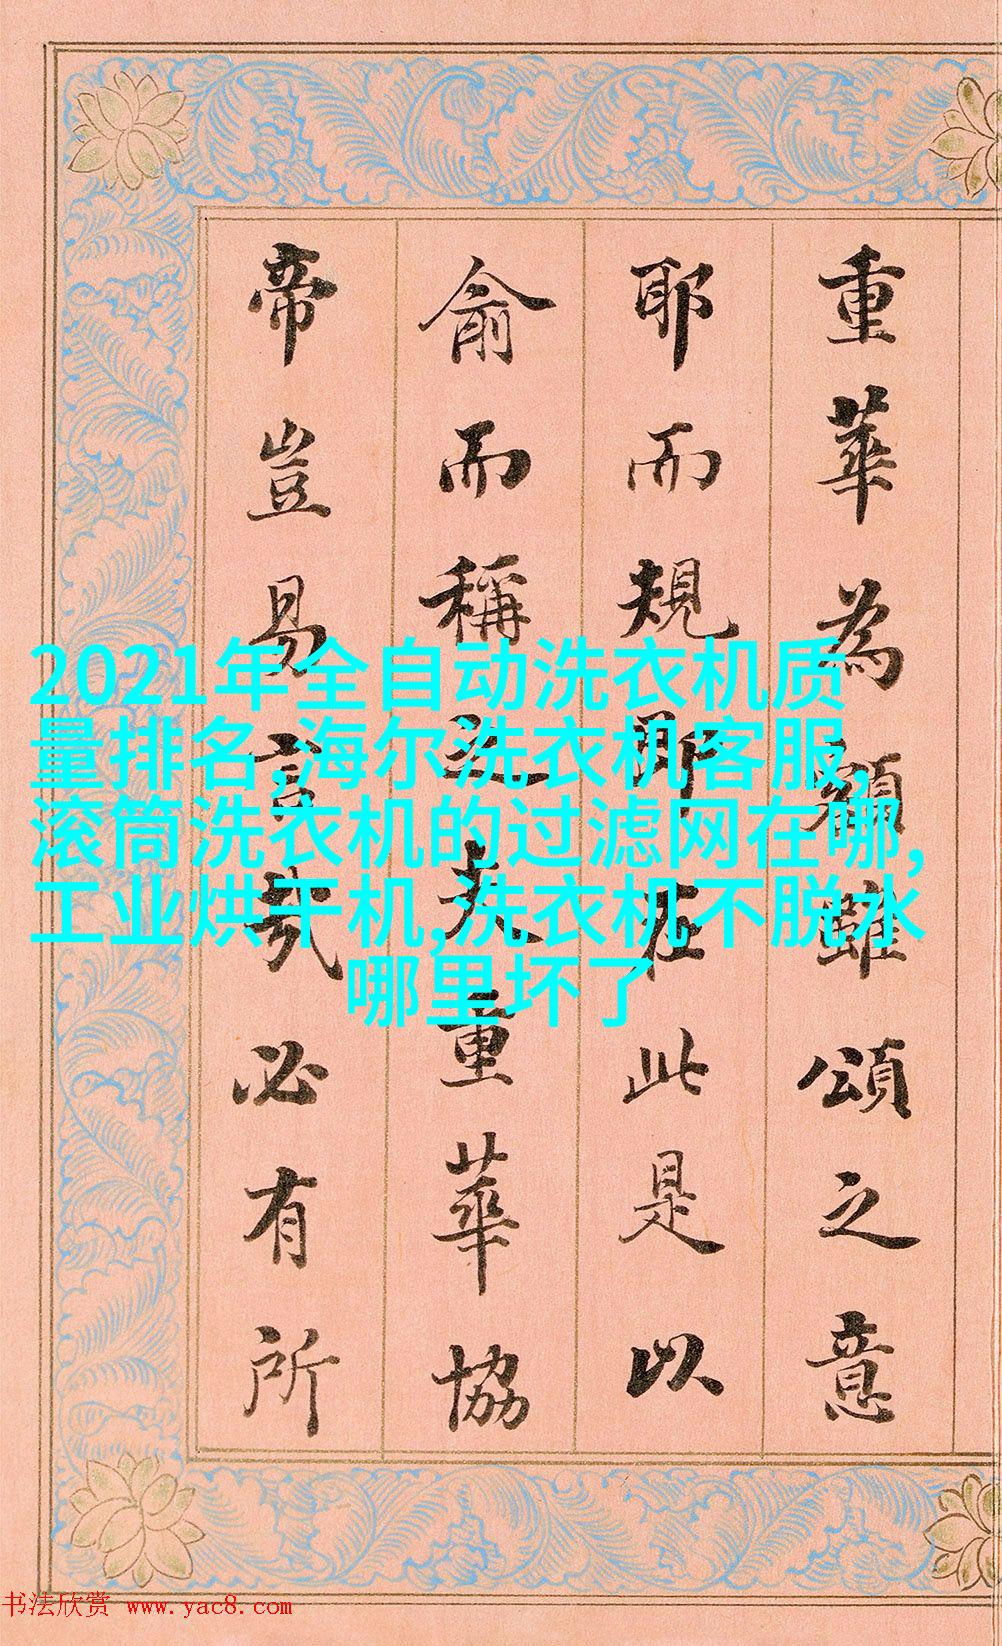 重華為顧雖頌之意
耶而規即在此是以
俞而稱之夫重華協
帝豈易言哉必有所
2021年全自动洗衣机质
量排名,海尔洗衣机客服,
滚筒洗衣机的过滤网在哪,
工业烘干机,洗衣机不脱水
哪里坏了
书法欣赏 www.yac8.com